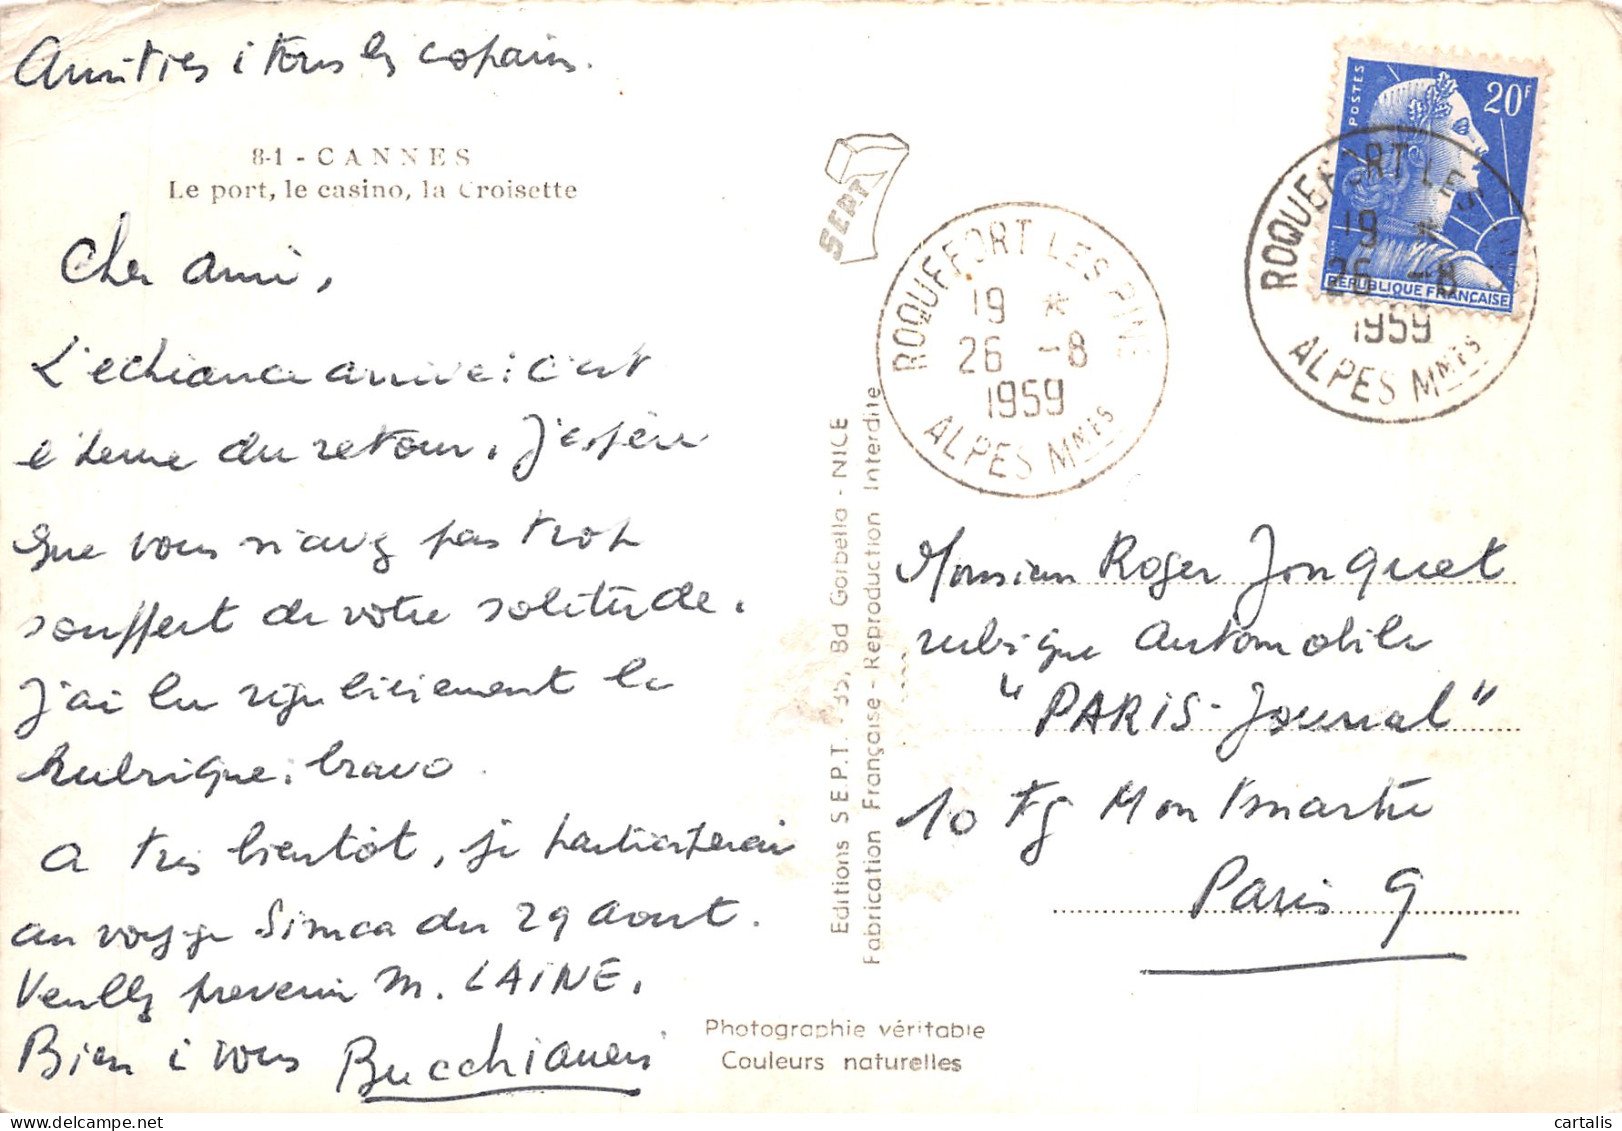 Amitiés à tous les copains.
8-1 - CANNES
Le port, le casino, la Croisette
Cher ami,
L'échéance arrive : c'est
l'heure du retour. J'espère
que vous n'avez pas trop
souffert de votre solitude.
J'ai lu régulièrement la
Rubrique : bravo
A très bientôt, je participerai
au voyage Simca du 29 Aout.
Veuillez prevenir M. LAINE.
Bien à vous
SEPT 7
Editions S.E.P.T. - 35, Bd Gorbella - NICE
Fabrication Française - Reproduction Interdite
Photographie véritable
Couleurs naturelles
ROQUEFORT LES PINS
19 *
26 -8
1959
ALPES MMES
POSTES
20F
REPUBLIQUE FRANÇAISE
ROQUEFORT LES PINS
19 *
26 -8
1959
ALPES MMES
Monsieur Roger Jonquet
rubrique Automobile
"PARIS-Journal"
10 Fg Montmartre
Paris 9
cartalis
delcampe.net